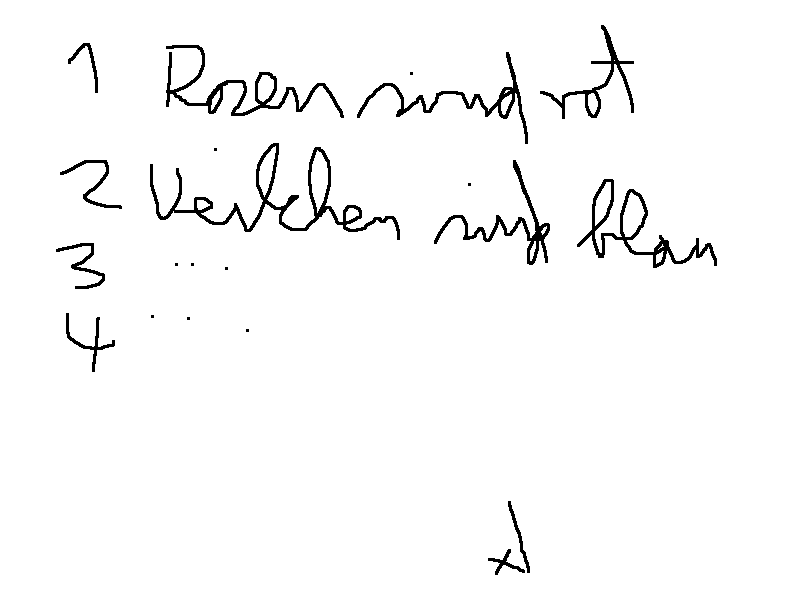 1 Rosen sind rot
2 Veilchen sind blau
3 ...
4 ...